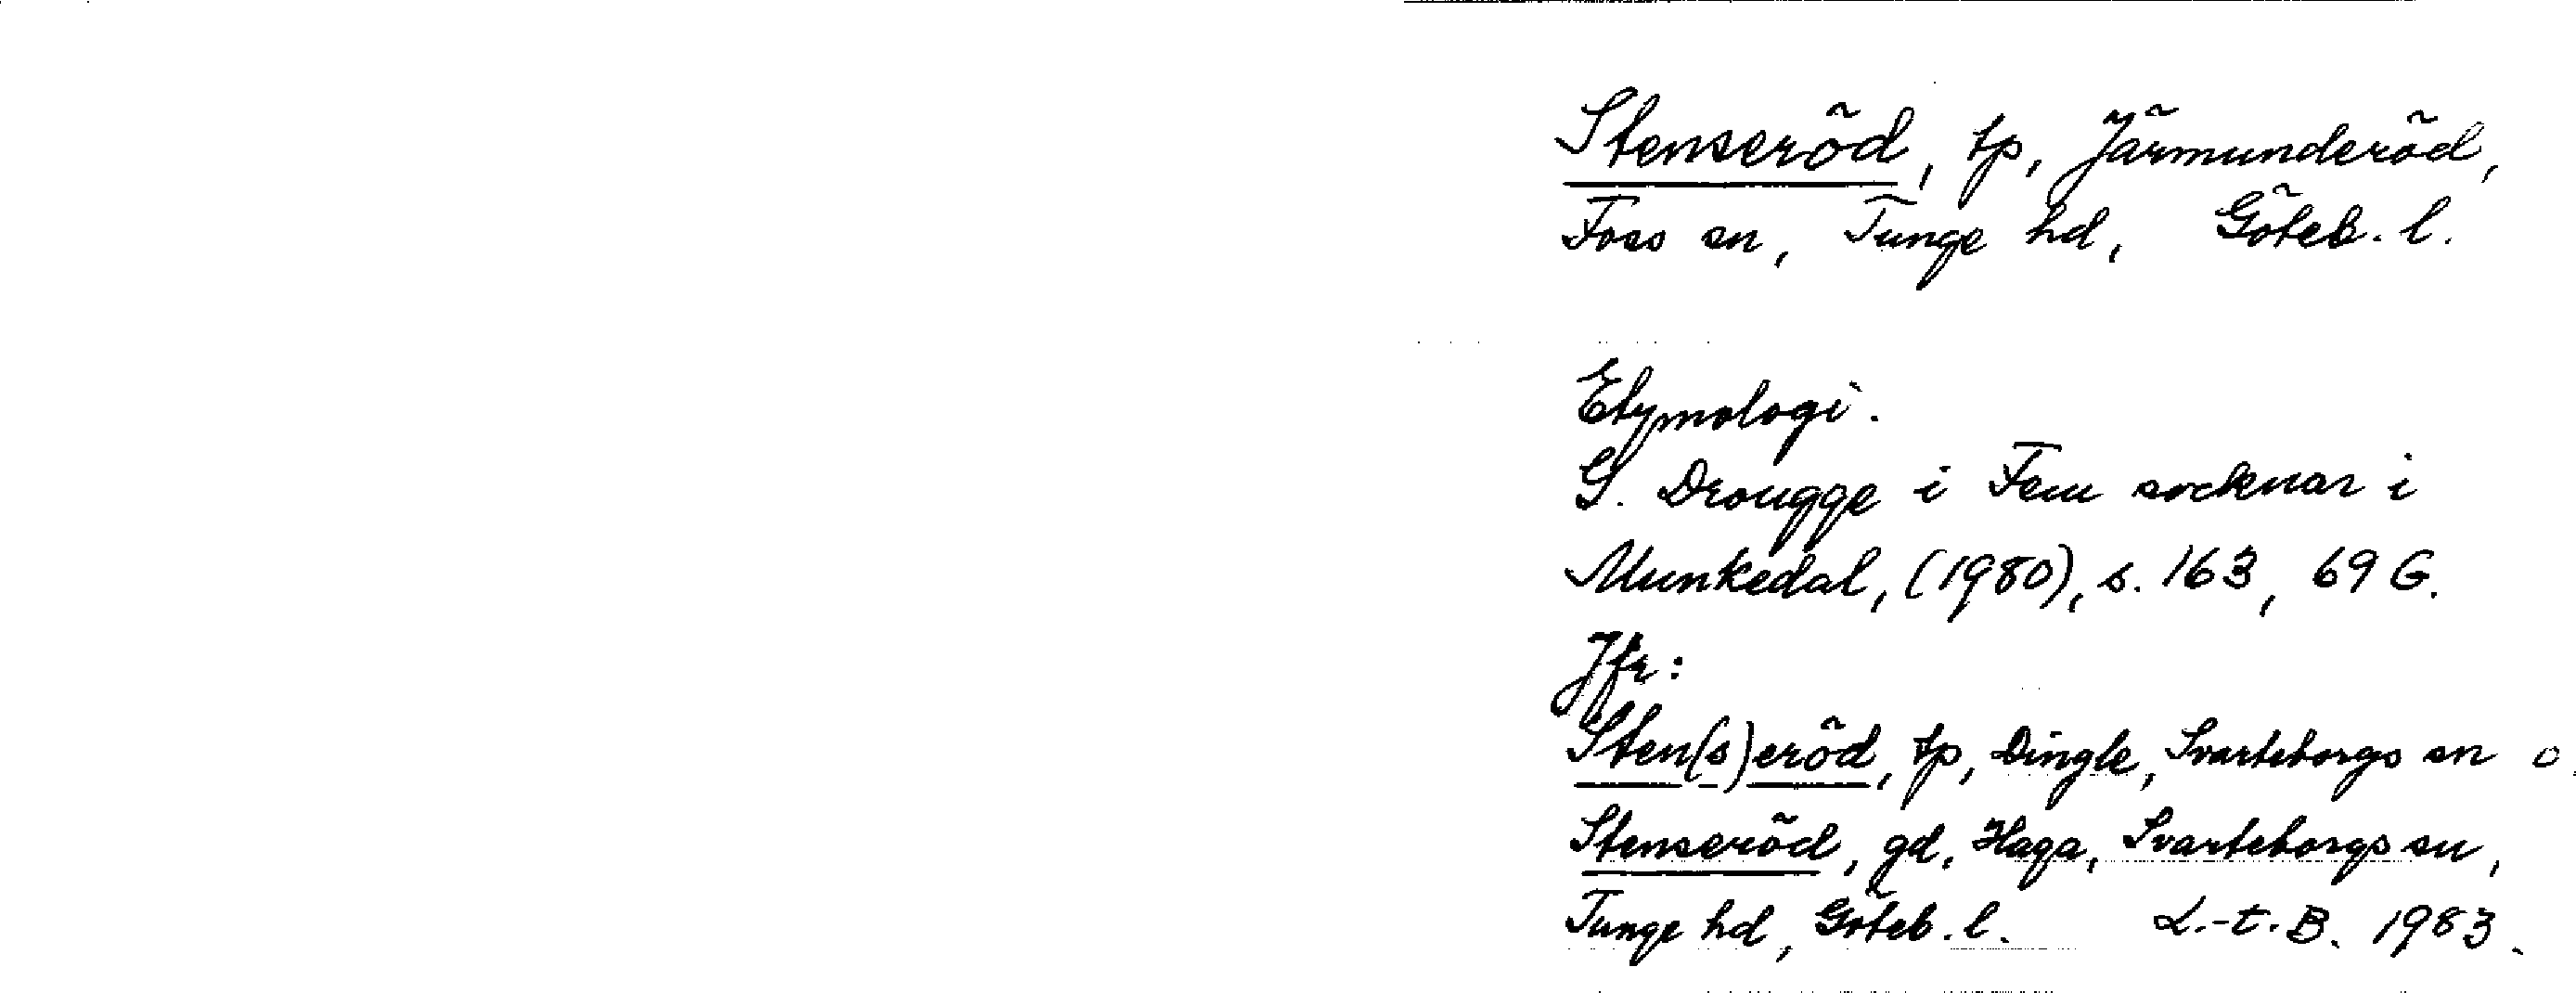 Stenseröd, tp, Järmunderöd,
Foss sn, Tunge hd, Göteb. l.
Etymologi.
G. Drougge i Fem socknar i
Munkedal, (1980), s. 163, 69 G.
Jfr:
Sten(s)eröd, tp, Dingle, Svarteborgs sn o.
Stenseröd, gd, Haga, Svarteborgs sn,
Tunge hd, Göteb. l. L.-t. B. 1983.